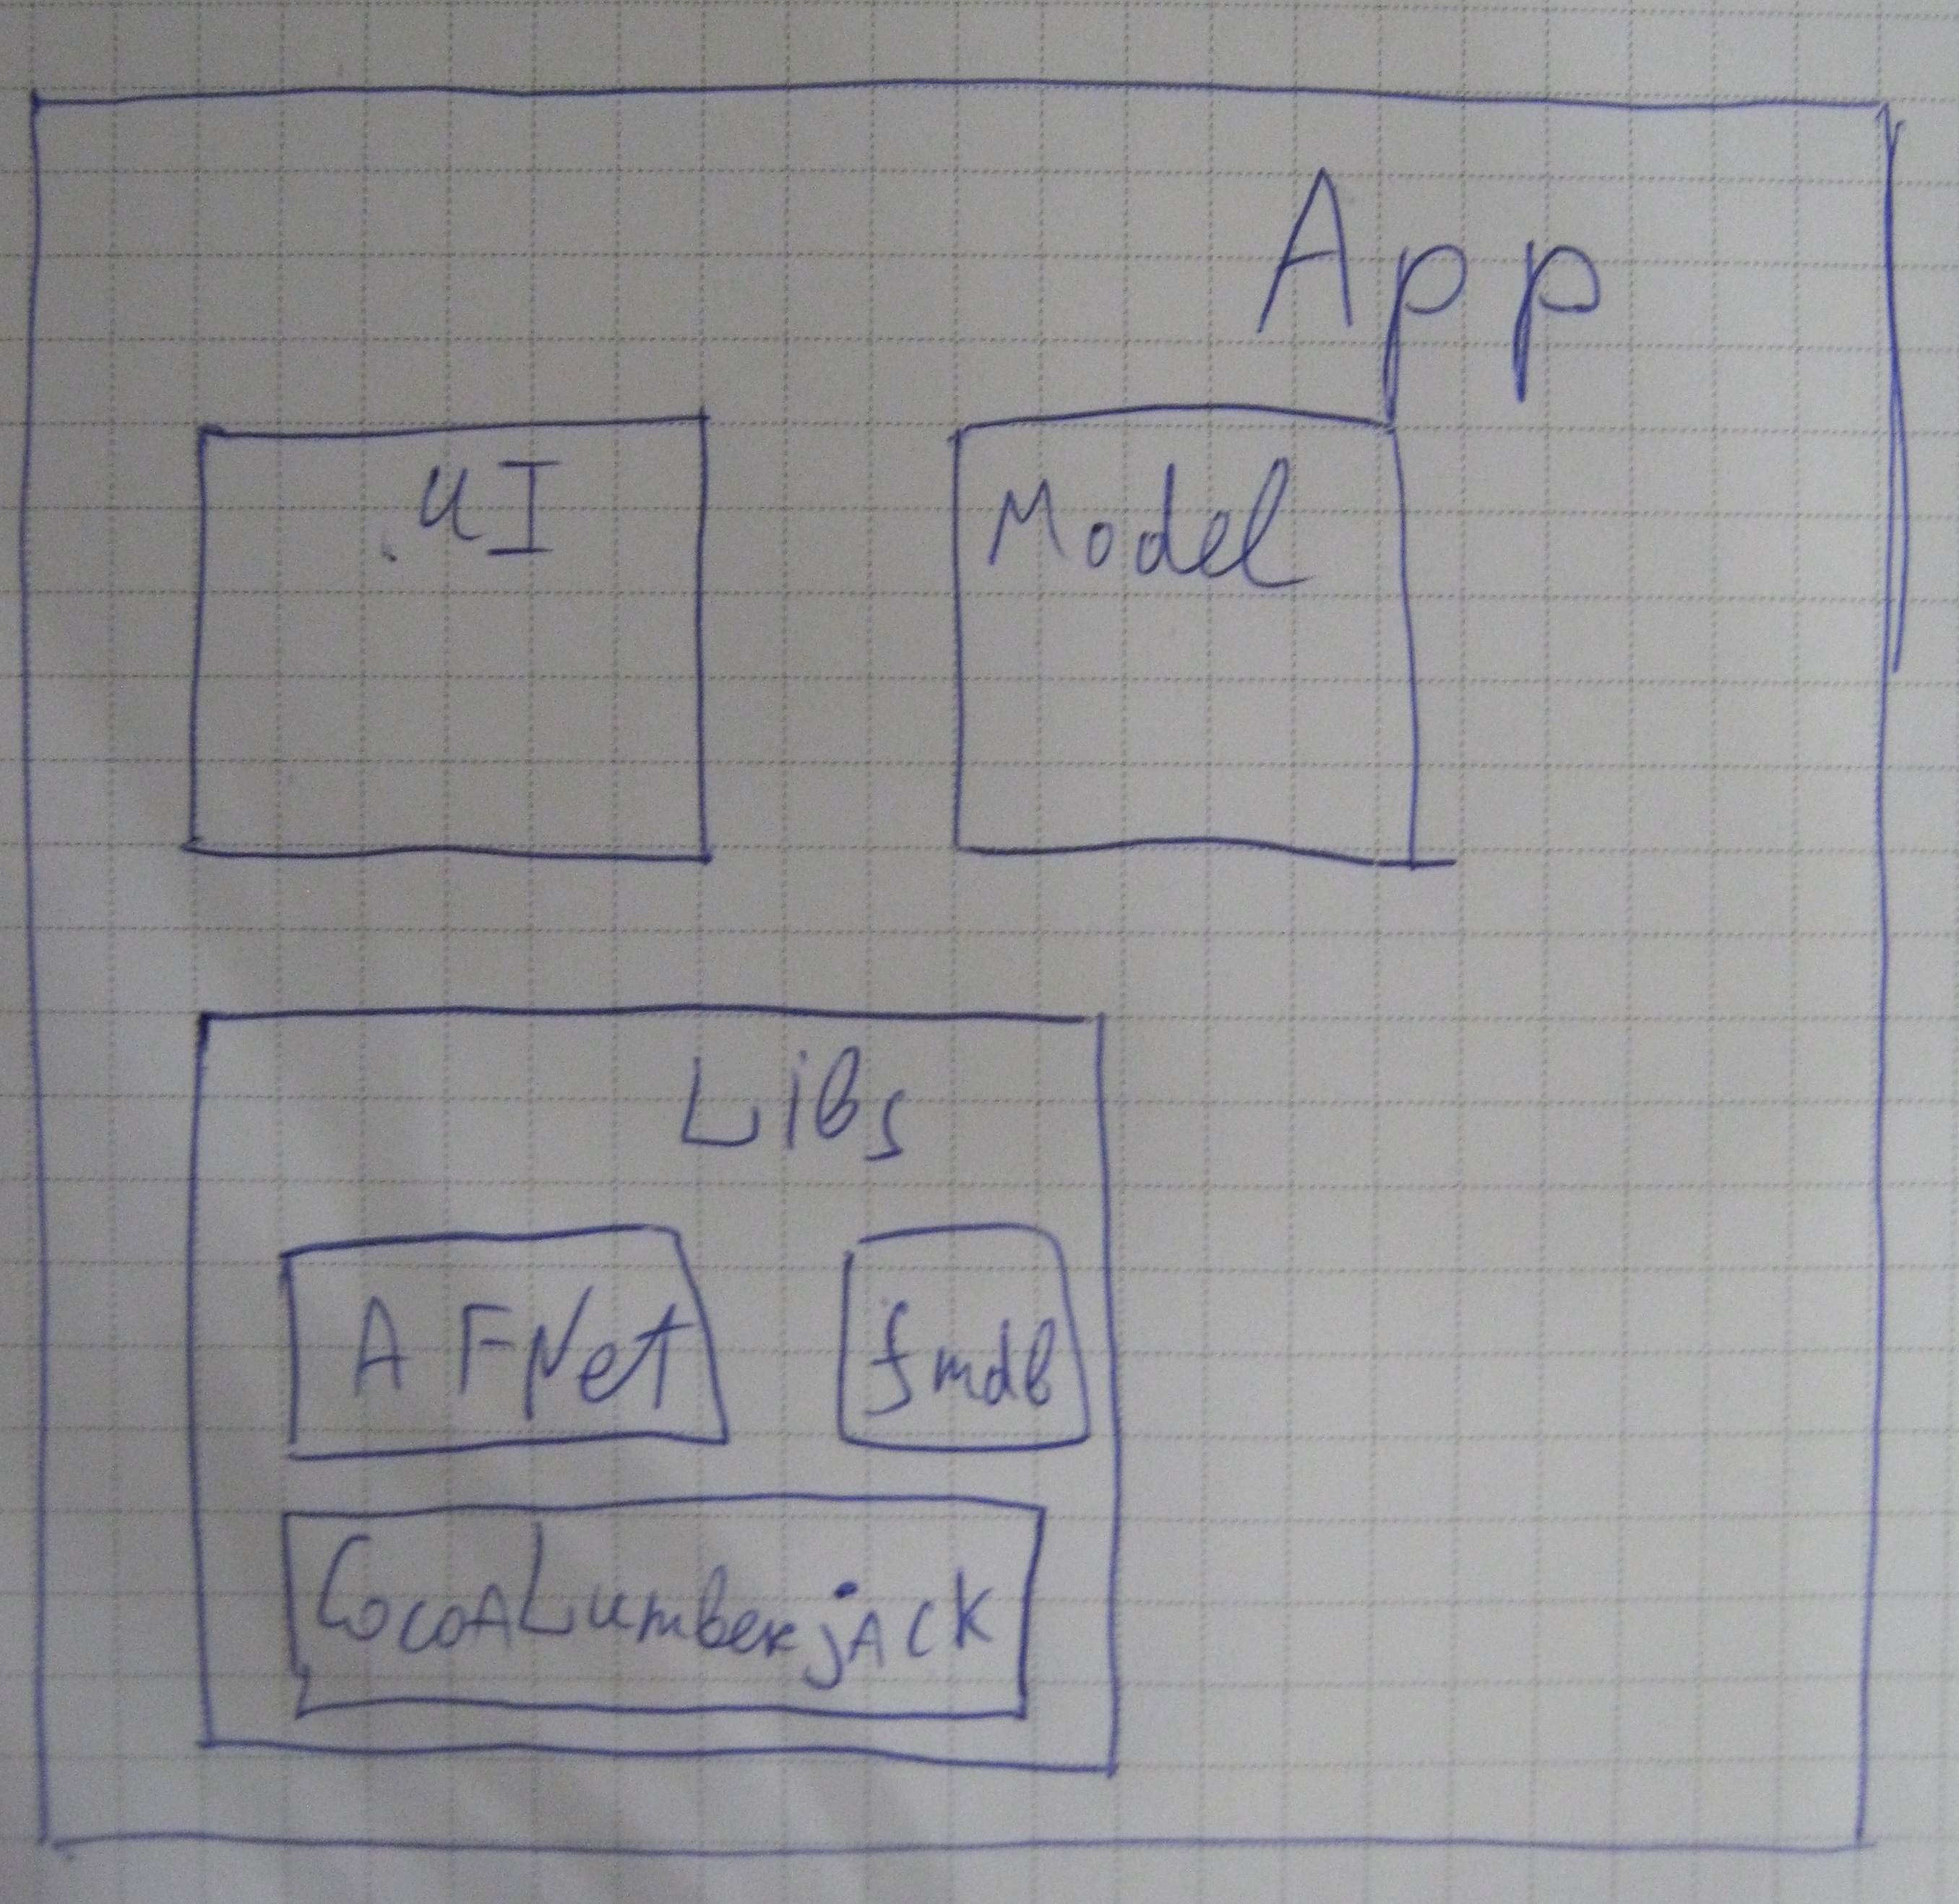 App
UI
Model
Libs
AFNet
fmdb
CocoALumberjACK